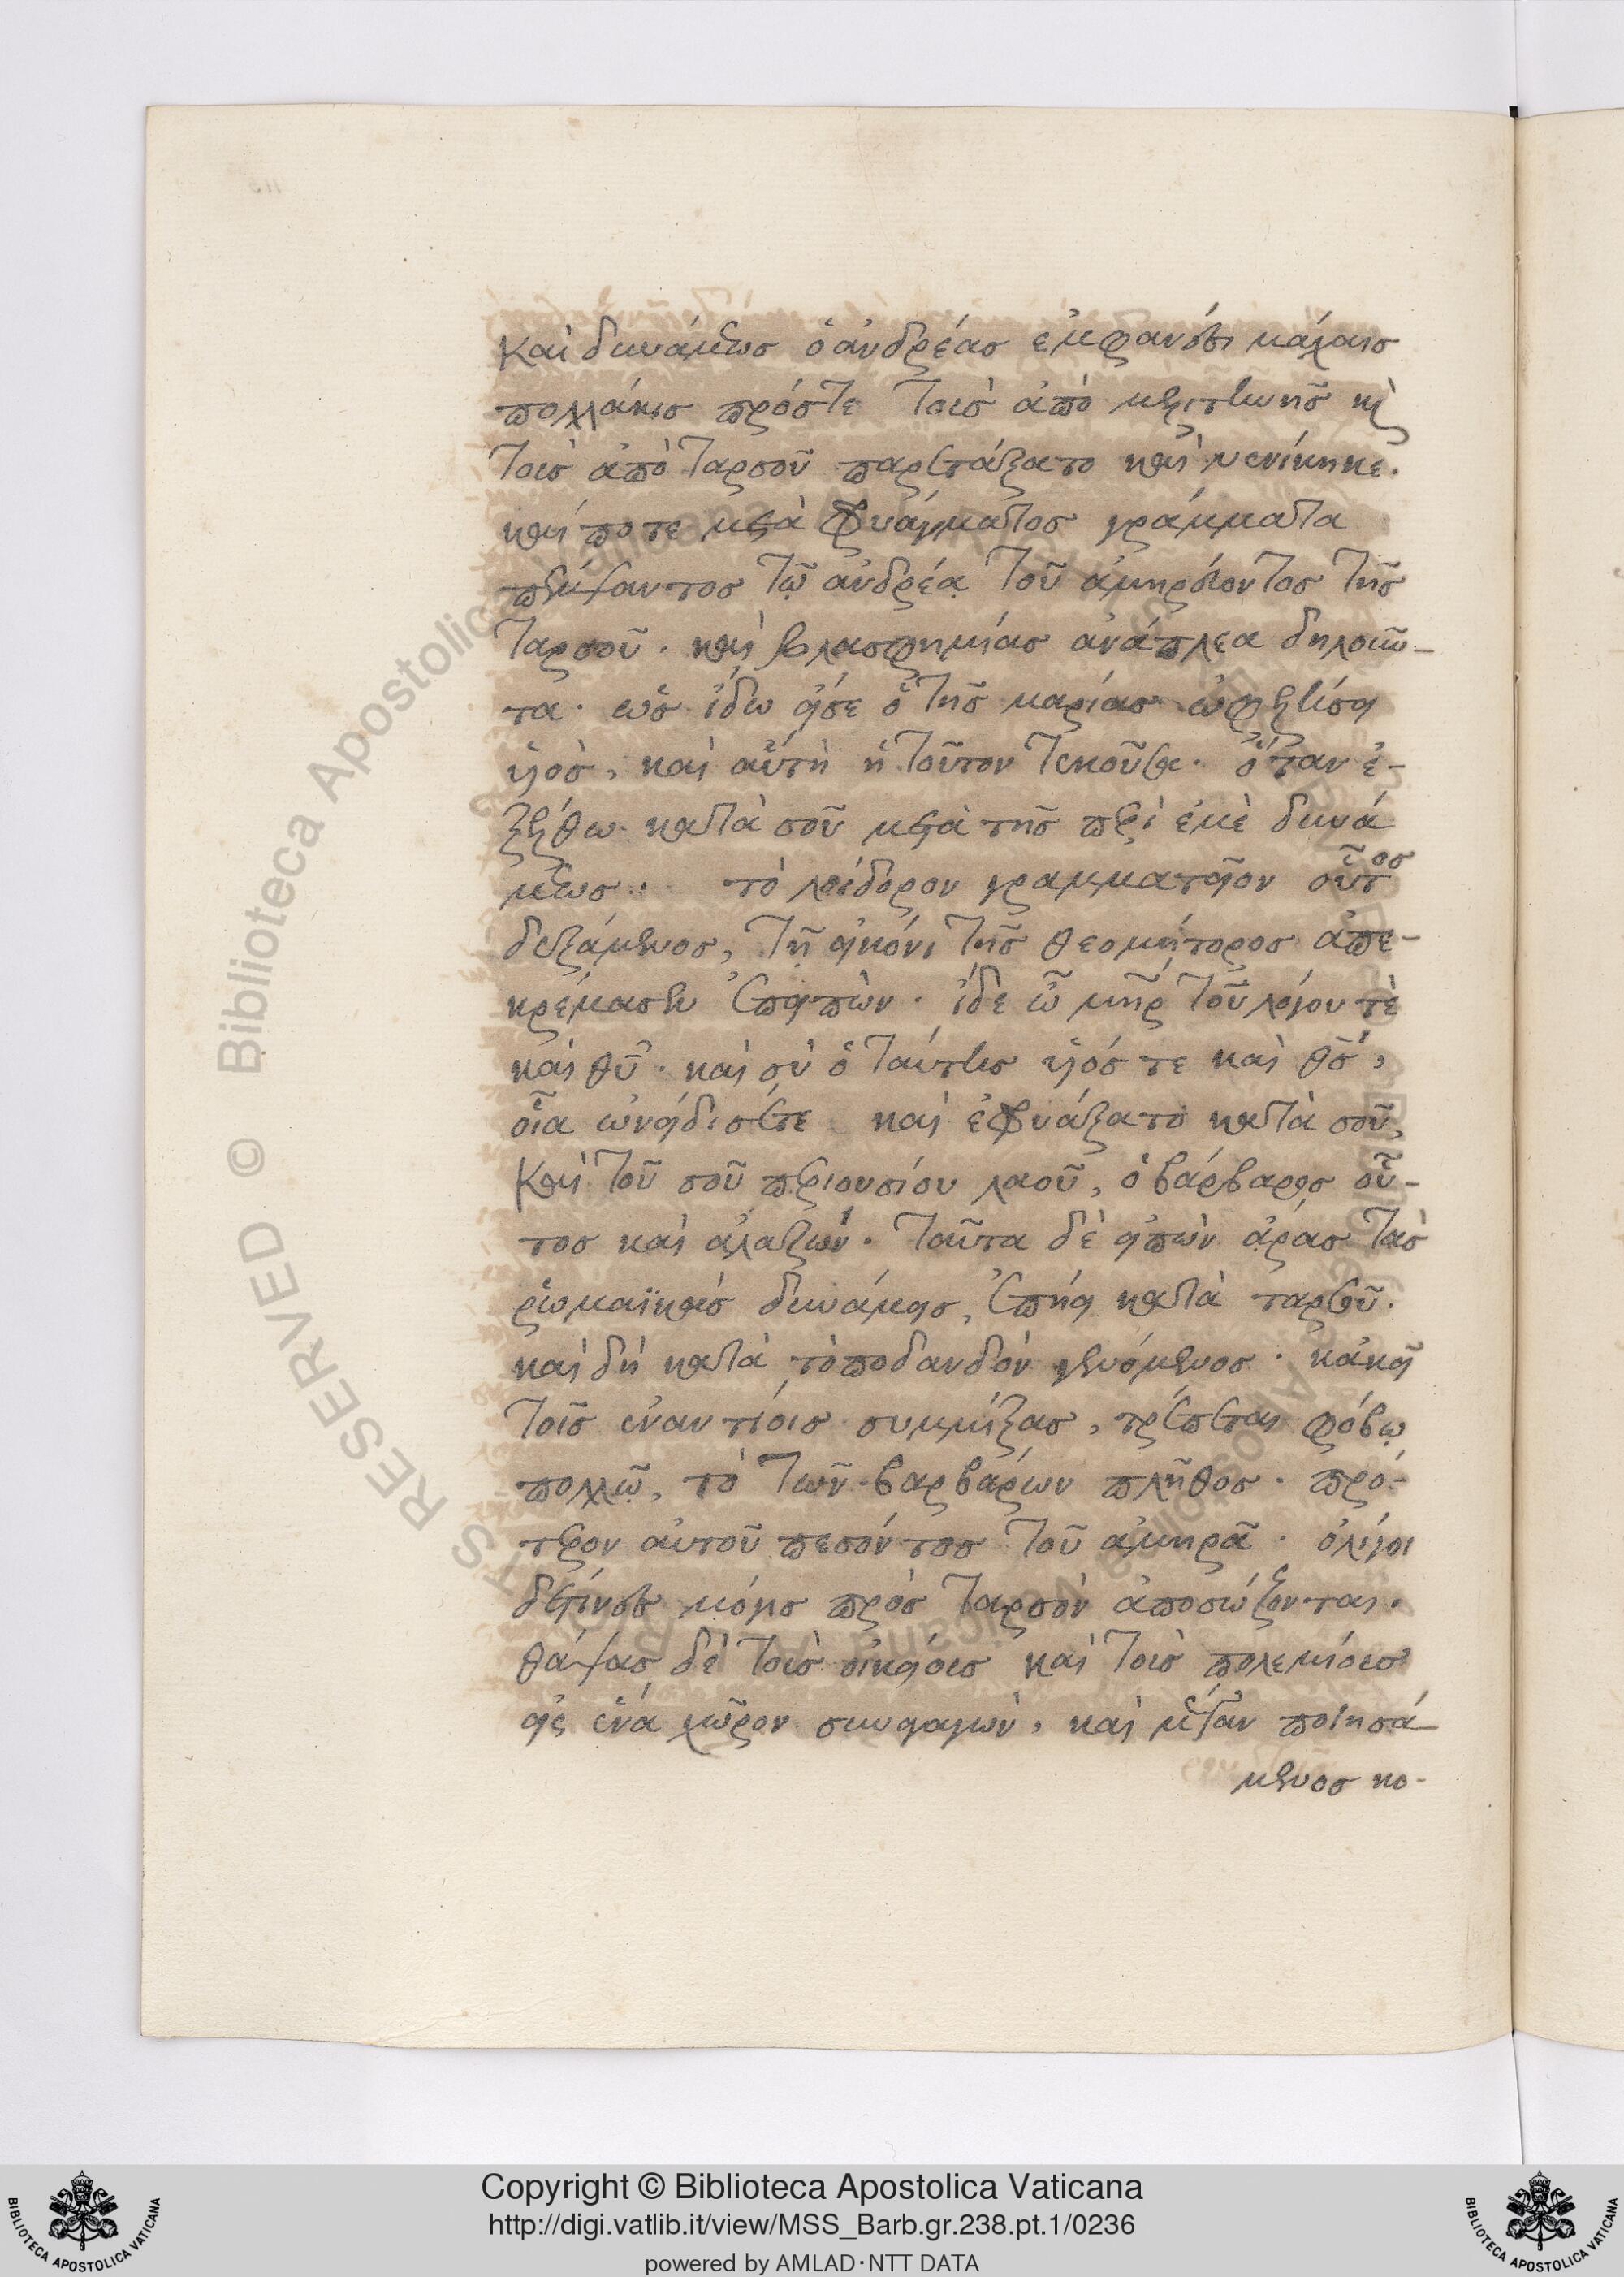 καὶ δυνάμεως ὁ ἀνδρέας ἐμφανέσι μάχαις
πολλάκις πρόστε τοὺς ἀπὸ μελιτινῆς κὶ
τοὺς ἀπὸ ταρσοῦ παρετάξατο καὶ νενίκηκε.
καί ποτε μετὰ φρυάγματος γράμματα
πέμψαντος τῷ ἀνδρέᾳ τοῦ ἀμηρεύοντος τῆς
ταρσοῦ. καὶ βλασφημίας ἀνάπλεα δηλοῦν-
τα. ὡς ἴδω εἴσε ὁ τῆς μαρίας ὠφελήσει
υἱὸς, καὶ αὐτὴ ἡ τοῦτον τεκοῦσα. ὅταν ἐ-
ξέλθω κατὰ σοῦ μετὰ τῆς περὶ ἐμὲ δυνά
μεως. τὸ λοίδορον γραμματεῖον οὗτος
δεξάμενος, τῇ εἰκόνι τῆς θεομήτορος ἀπε-
κρέμασεν ἐπειπὼν. ἴδε ὦ μῆρ τοῦ λόγου τὲ
καὶ θῦ. καὶ σὺ ὁ ταύτης υἱός τε καὶ θς,
οἷα ὠνείδισέτε καὶ ἐφρυάξατο κατὰ σοῦ,
καὶ τοῦ σοῦ περιουσίου λαοῦ, ὁ βάρβαρος οὗ-
τος καὶ ἀλαζών. ταῦτα δὲ εἰπὼν ἄρας τὰς
ῥωμαϊκὰς δυνάμεις, ἐπῄει κατὰ ταρσοῦ.
καὶ δὴ κατὰ τὸποδανδὸν γενόμενος. κἀκεῖ
τοῖς ἐναντίοις συμμίξας, τρέπεται φόβῳ
πολλῷ, τὸ τῶν βαρβάρων πλῆθος. πρό-
τερον αὐτοῦ πεσόντος τοῦ ἀμηρᾶ. ὀλίγοι
δέτινες μόγις πρὸς ταρσὸν ἀποσώζονται.
θάψας δὲ τοὺς οἰκείους καὶ τοὺς πολεμίους
εἰς ἕνα χῶρον συναγαγὼν, καὶ ποιησά-
μενος κο-
Copyright © Biblioteca Apostolica Vaticana
http://digi.vatlib.it/view/MSS_Barb.gr.238.pt.1/0236
powered by AMLAD·NTT DATA
BIBLIOTECA APOSTOLICA VATICANA
BIBLIOTECA APOSTOLICA VATICANA